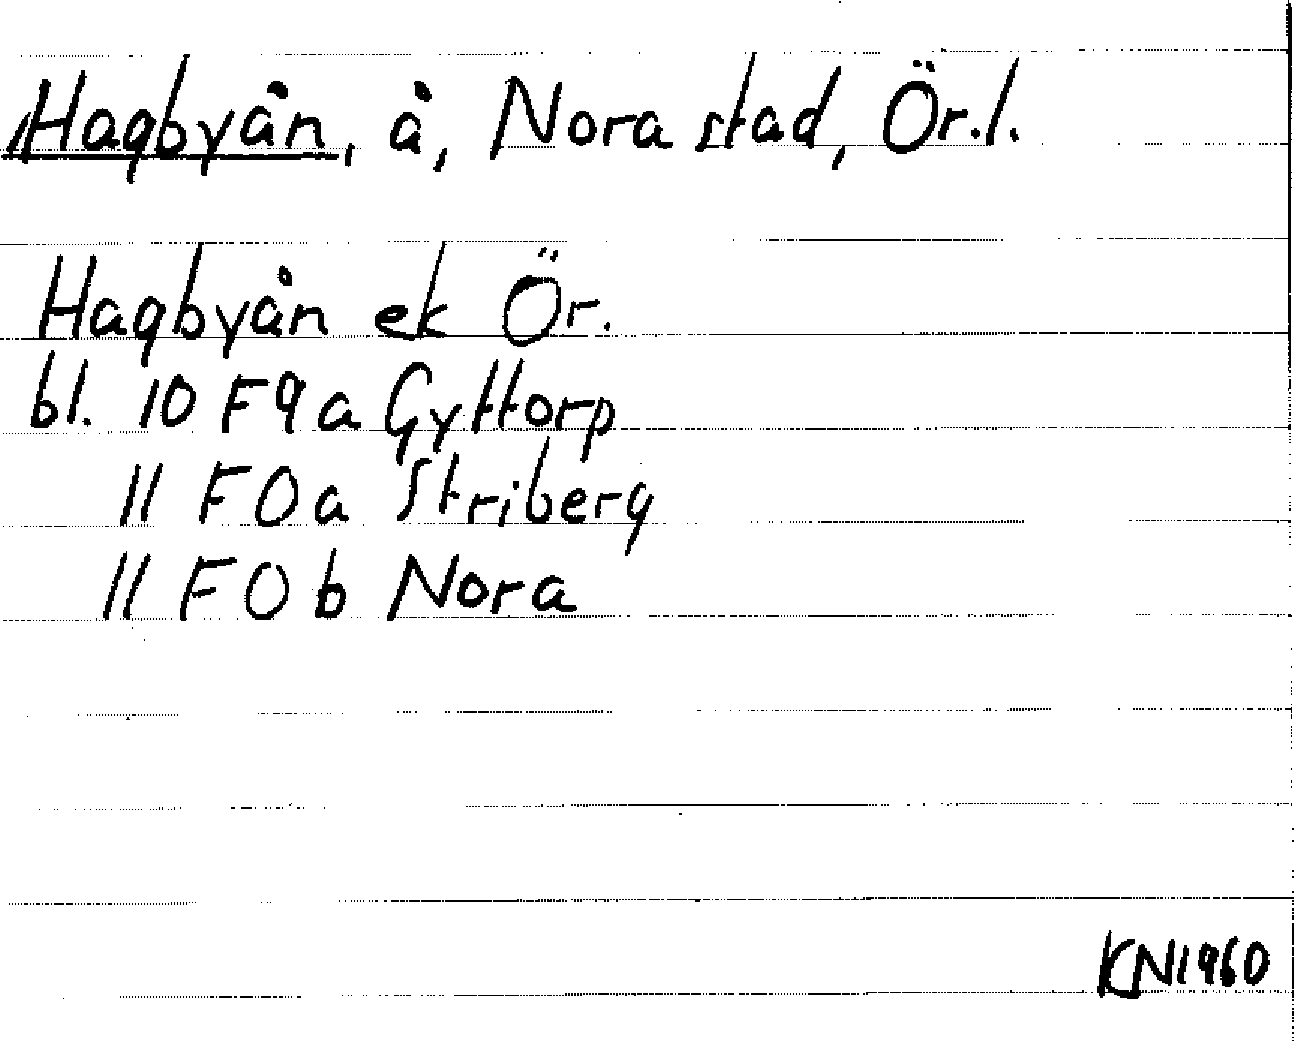 Hagbyån, å, Nora stad, Ör.l.
Hagbyån ek Ör.
bl. 10 F 9 a Gyttorp
11 F 0 a Striberg
11 F 0 b Nora
KN1960